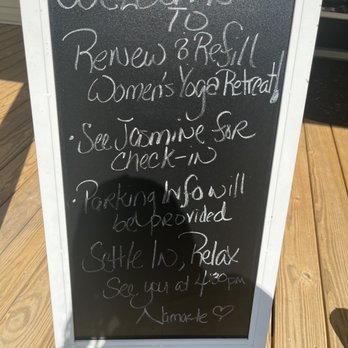 WELCOME
TO
Renew & Refill
Women's Yoga Retreat!
• See Jasmine for
check-in
• Parking Info will
be provided
Settle In, Relax
See you at 4:30pm
Namaste ♡